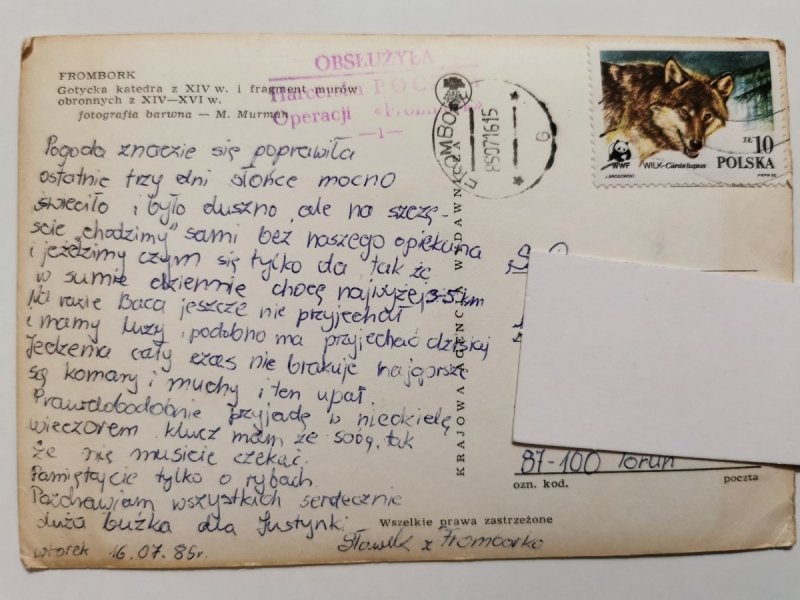 FROMBORK
Gotycka katedra z XIV w. i fragment murów
obronnych z XIV—XVI w.
fotografia barwna — M. Murman
OBSŁUŻYŁA
Harcerska POCZTA
Operacji «Frombork»
—1—
FROMBORK
85071615
6
WWF
WILK-Canis lupus
ZŁ 10
POLSKA
Pogoda znacznie się poprawiła
ostatnie trzy dni słońce mocno
świeciło i było duszno, ale na szczę-
ście „chodzimy" sami bez naszego opiekuna
i jeździmy czym się tylko da, tak że
w sumie dziennie chodzę najwyżej 3-5 km
Na razie Baca jeszcze nie przyjechał
i mamy luzy, podobno ma przyjechać dzisiaj
Jedzenia cały czas nie brakuje najgorsze
są komary i muchy i ten upał.
Prawdobodobnie przyjadę w niedzielę
wieczorem, klucz mam ze sobą, tak
że nie musicie czekać.
Pamiętajcie tylko o rybach
Pozdrawiam wszystkich serdecznie
duża buźka dla Justynki.
Sławek z Fromborka
wtorek 16.07.85r.
KRAJOWA AGENCJA WYDAWNICZA
87-100 Toruń
ozn. kod. poczta
Wszelkie prawa zastrzeżone